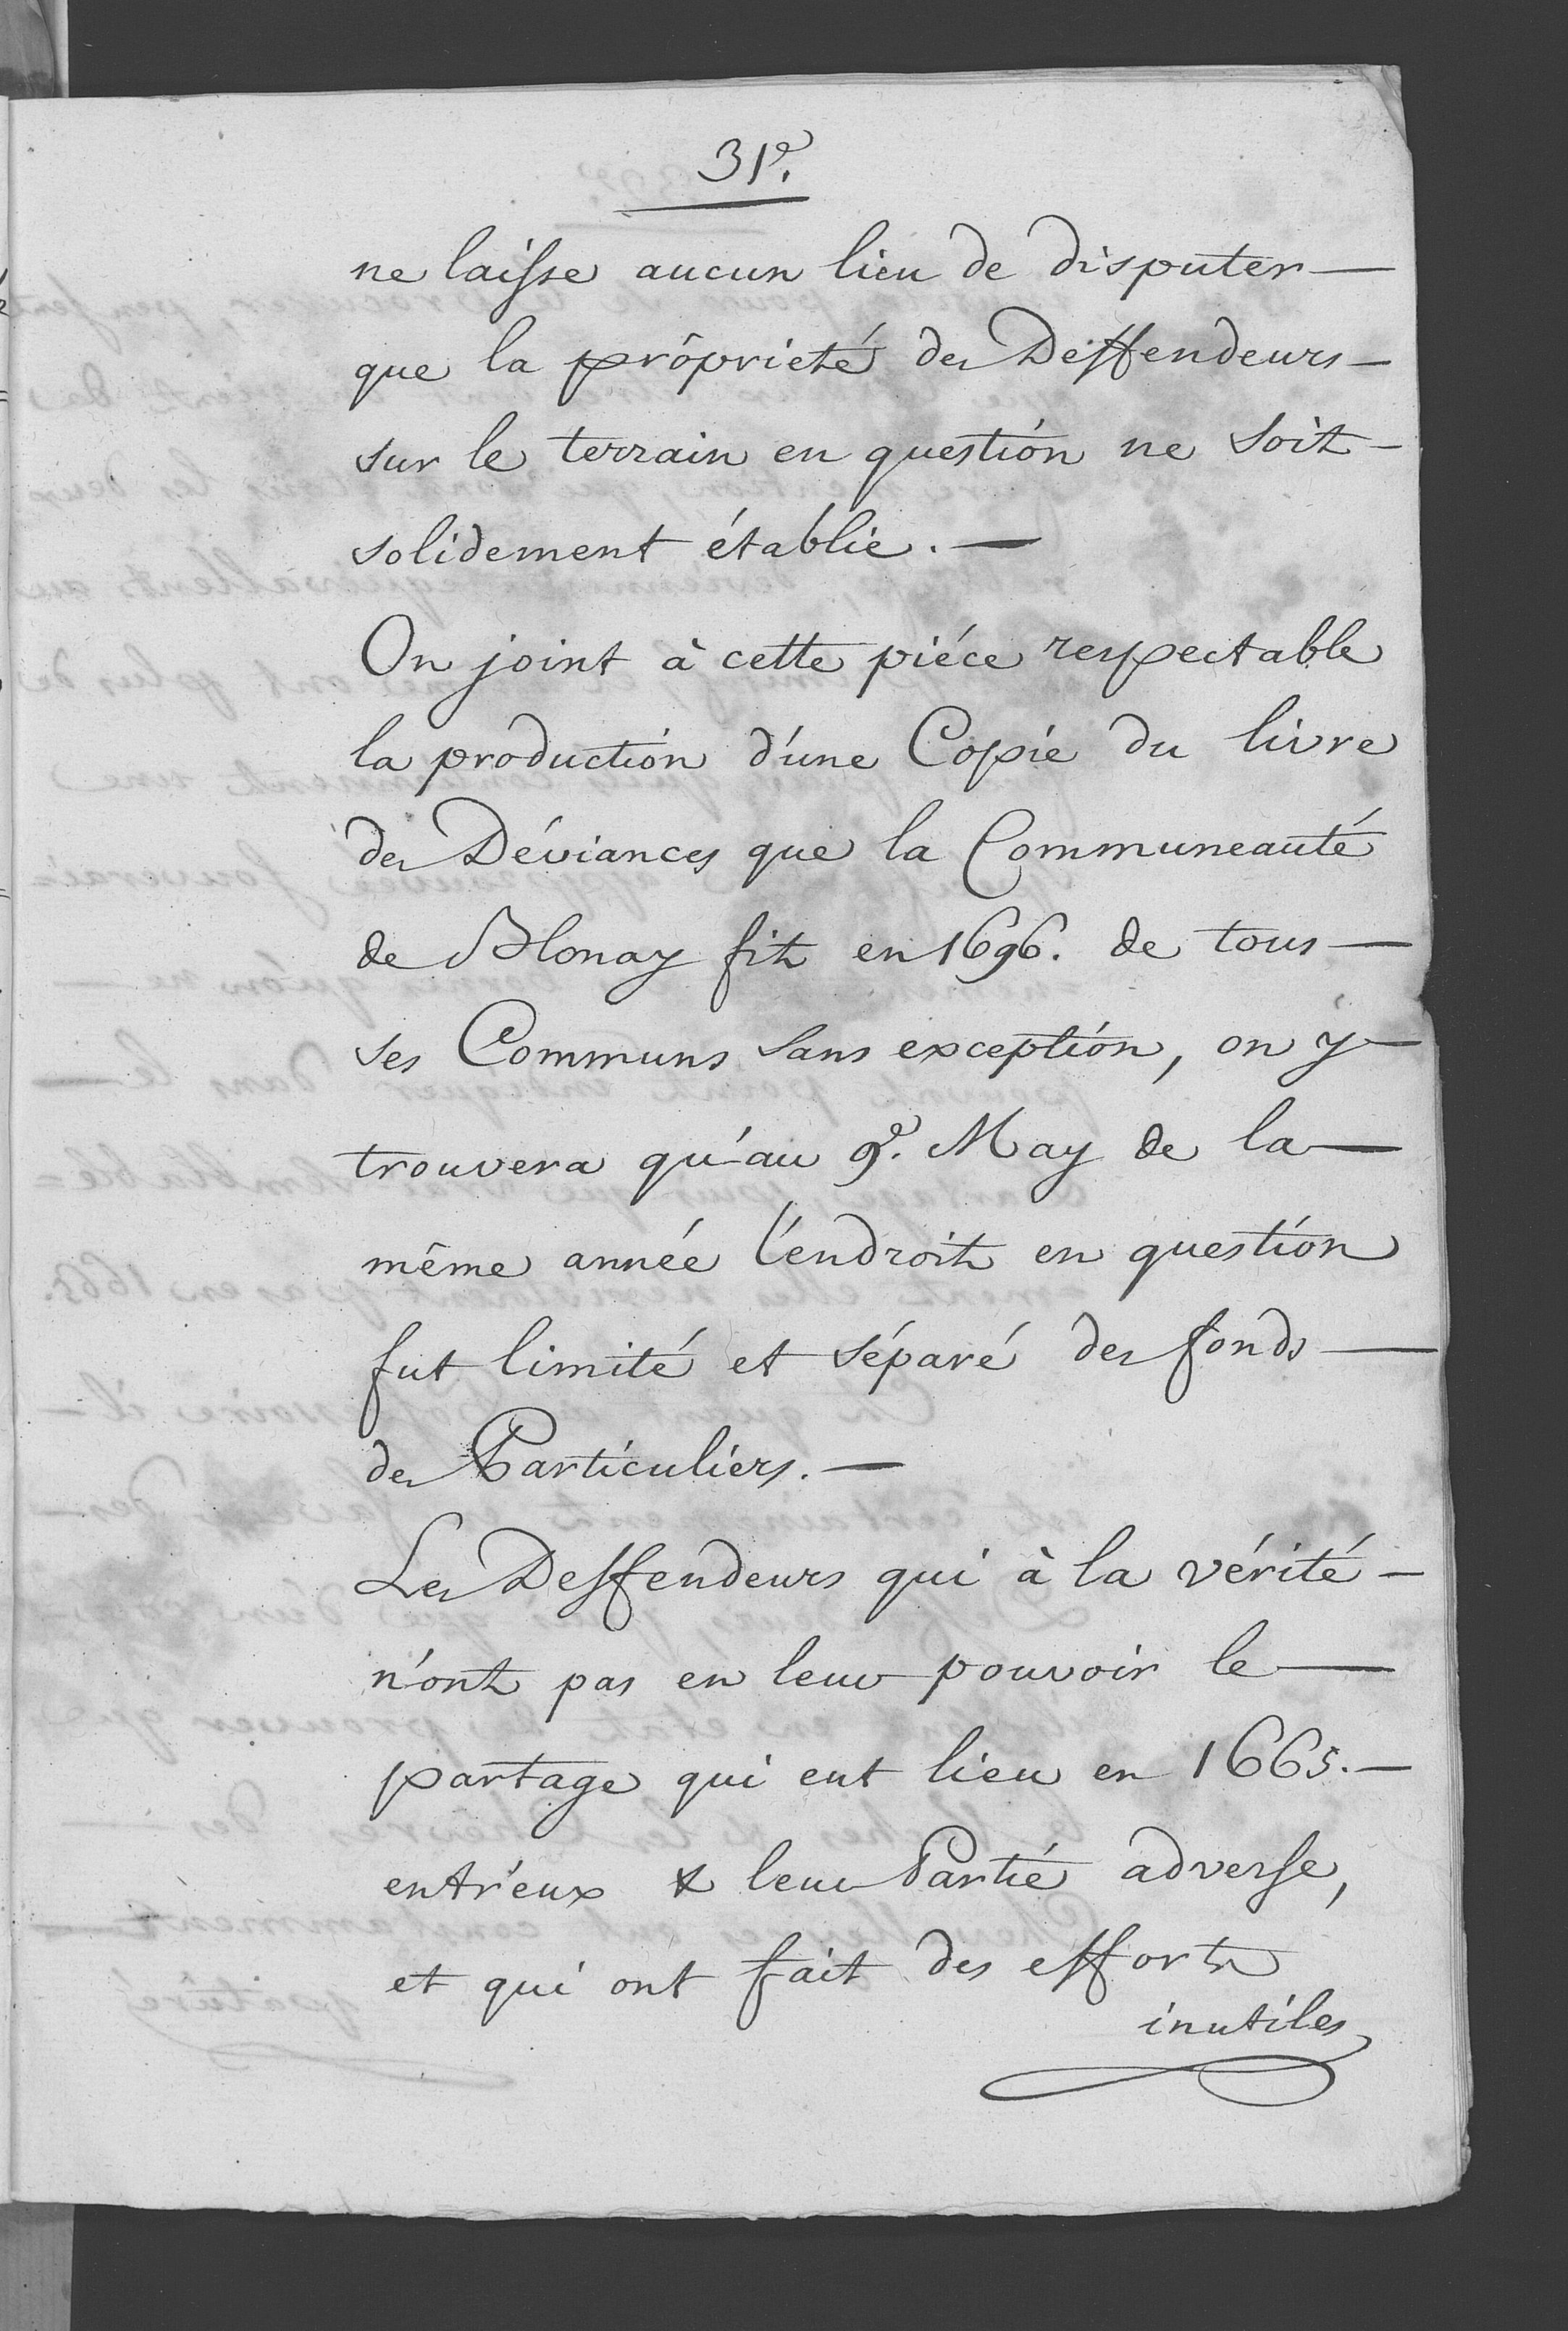 31e.
ne laisse aucun lieu de disputer —
que la propriété des Deffendeurs —
sur le terrain en question ne soit —
solidement établie. —
On joint à cette piéce respectable
la production d'une Copie du livre
des Déviances que la Communeauté
de Blonay fit en 1696. de tous —
ses Communs sans exception, on y —
trouvera qu'au 9e. May de la —
même année l'endroit en question
fut limité et séparé des fonds —
des Particuliers. —
Les Deffendeurs qui à la vérité —
n'ont pas en leur pouvoir le —
partage qui eut lieu en 1665. —
entr'eux & leur Partie adverse,
et qui ont fait des efforts
inutiles